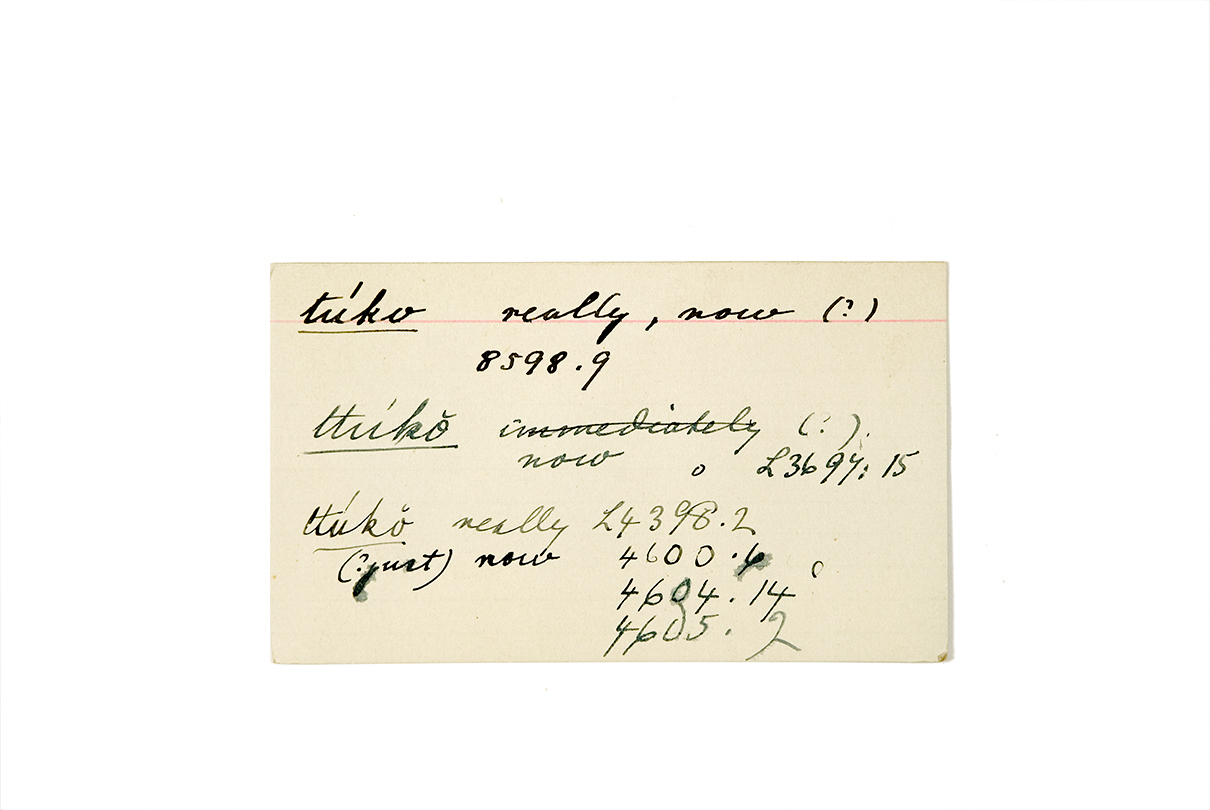 túko really, now (?)
8598.9
ttúkŏ ~~immediately~~ (?).
now o L3697:15
ttúkŏ really L4398.2
(?just) now 4600.6
4604.14
4605.2